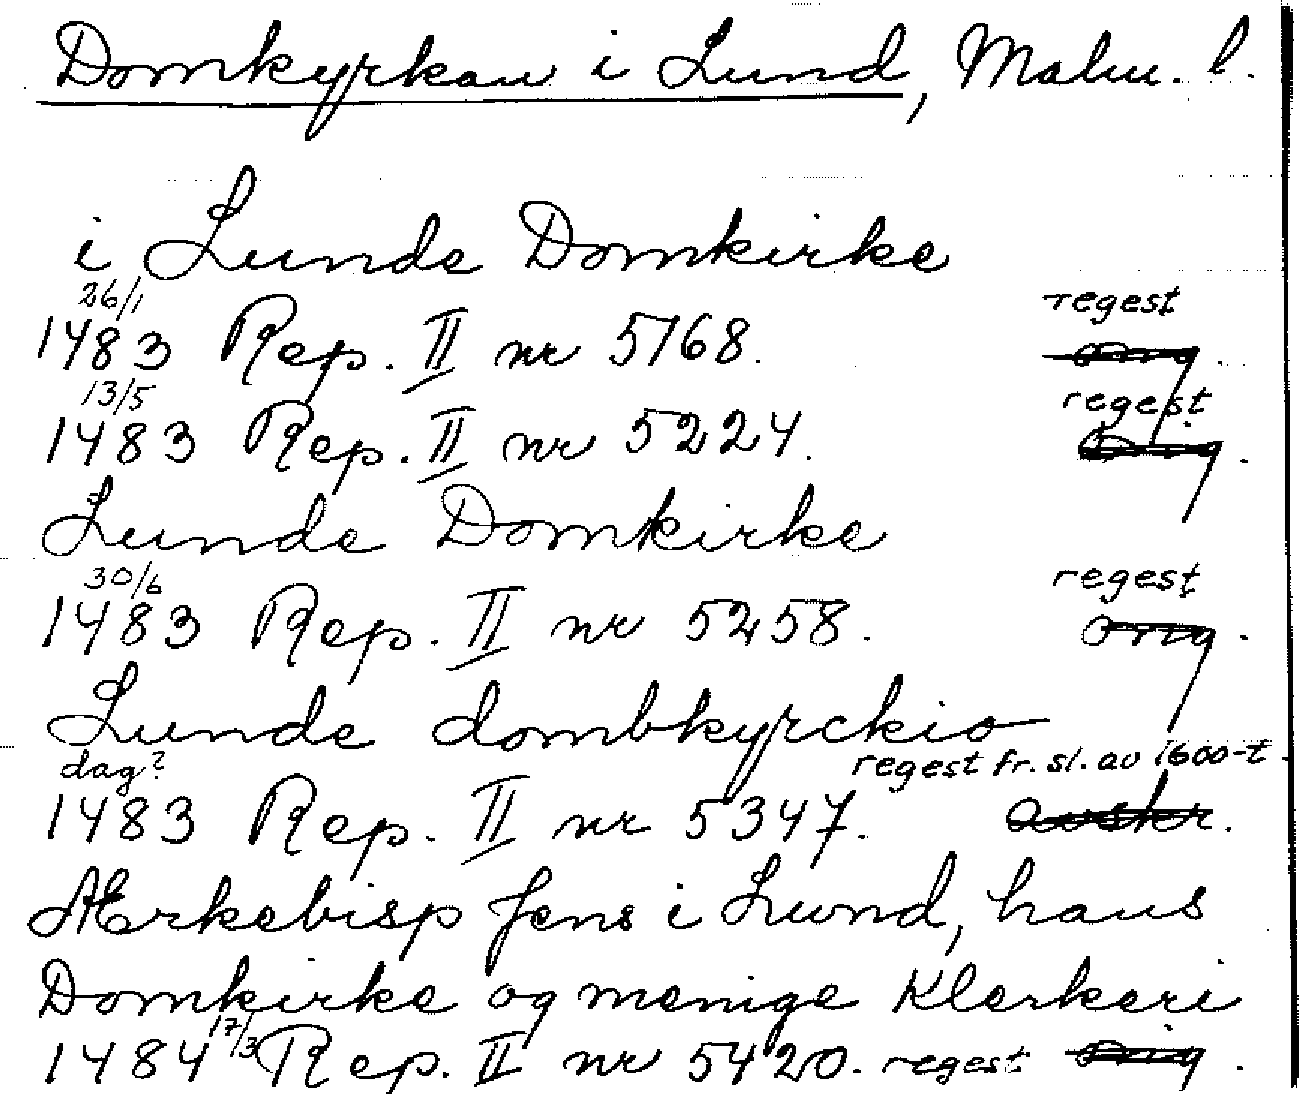 Domkyrkan i Lund, Malm. l.
i Lunde Domkirke
26/1 regest
1483 Rep. II nr 5768. orig.
13/5 regest
1483 Rep. II nr 5224. orig.
Lunde Domkirke
30/6 regest
1483 Rep. II nr 5258. orig.
Lunde dombkyrckio
dag? regest fr. sl. av 1600-t.
1483 Rep. II nr 5347. avskr.
Ærkebisp Jens i Lund, hans
Domkirke og menige Klerkeri
1484 17/3 Rep. II nr 5420. regest orig.